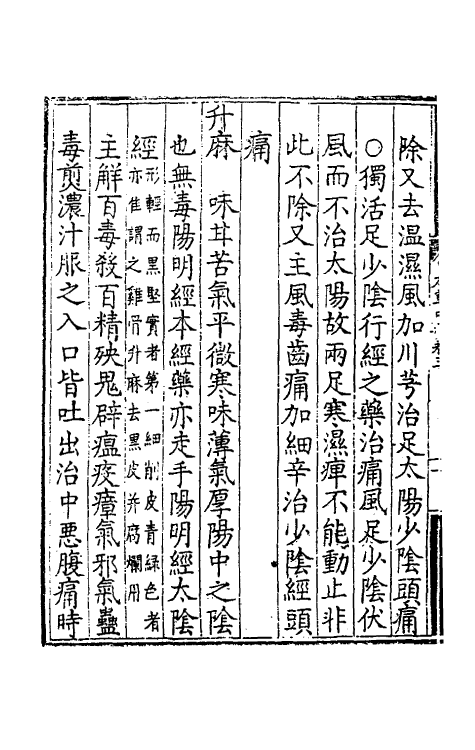 除又去温濕風加川芎治足太陽少陰頭痛
○獨活足少陰行經之藥治痛風足少陰伏
風而不治太陽故兩足寒濕痺不能動止非
此不除又主風毒齒痛加細辛治少陰經頭
痛
升麻　味甘苦氣平微寒味薄氣厚陽中之陰
也無毒陽明經本經藥亦走手陽明經太陰
經形輕而黑堅實者第一細削皮青綠色者
亦佳謂之雞骨升麻去黑皮并腐爛用
主解百毒殺百精殃鬼辟瘟疫瘴氣邪氣蠱
毒煎濃汁服之入口皆吐出治中惡腹痛時